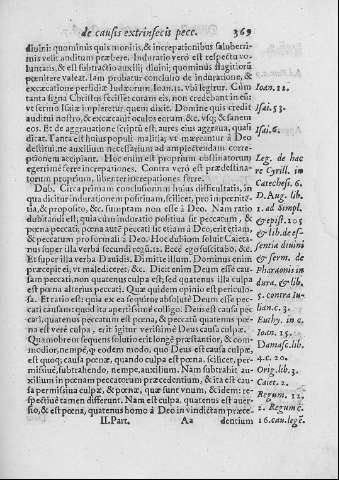 de causis extrinsecis pecc. 369
divini: quominus quis monitis, & increpationibus saluberri-
mis velit auditum præbere. Induratio verò est respectu vo-
luntatis, & est subtractio auxilij divini, quominus flagitiorũ
pœnitere valeat. Iam probatur conclusio de induratione, &
excæcatione perfidiæ Iudæorum Ioan. 12. vbi legitur. Cùm
tanta signa Christus fecisset coram eis, non credebant in eũ:
vt sermo Isaiæ impleretur quem dixit. Domine quis credit
auditui nostro, & excæcavit oculos eorum &c. vsq; & sanem
eos. Et de aggravatione scriptũ est. aures eius aggrava, quasi
dicat. Tanta est huius populi malitia; vt mæreatur à Deo
destitui, ne auxilium necessarium ad amplectendam corre-
ptionem accipiant. Hoc enim est proprium obstinatorum
egerrimè ferre increpationes. Contra verò est prædestina-
torum proprium, libenter increpationes ferre.
Dub. Circa primam conclusionem huius difficultatis, in
qua dicitur indurationem positivam, scilicet, pro impœnitẽ-
tia, & proposito, &c. sumptam non esse à Deo. Nam ratio
dubitandi est, quia videtur obduratio, & peccatum, quatenus
pœna, esse à Deo; pœna autẽ peccati licet etiam à Deo erit, &
peccatum pro formali à Deo. Hoc dubium solvit Caieta-
nus super illa verba secundi reg. 12. Ecce ego suscitabo, &c.
Et super illa verba Davidis. Dimitte illum. Dominus enim
præcepit ei, vt malediceret. &c. Dicit enim Deum esse cau-
sam peccati, non quatenus culpa est; sed quatenus illa culpa
est pœna alterius peccati. Quæ quidem opinio est periculo-
sa. Et ratio est: quia ex ea sequitur absolutè Deum esse pec-
cati causam: quod ita apertissimè colligo. Deus est causa pec-
cati, quatenus peccatum est pœna, & peccatũ quatenus pœ-
na est verè culpa, erit igitur verissimè Deus causa culpæ.
Quamobrem sequens solutio erit longè præstantior, & com-
modior, nempè, q eodem modo, quo Deus est causa culpæ,
est quoq; causa pœnæ, quando culpa est pœna, scilicet, per-
missivè, subtrahendo, nempè, auxilium. Nam subtrahit au-
xilium in pœnam peccatorum præcedentium, & ita est cau-
sa permissiva culpæ, & pœnæ, quæ sunt vnum, & idem: re-
spective tamen differunt. Nam est culpa, quatenus est aver-
sio, & est pœna, quatenus homo à Deo in vindictam præce-
II. Part. Aa dentium
Ioan. 12.
Isai. 53.
Isai. 6.
Leg. de hac
re Cyrill. in
Catechesi. 6
D. Aug. lib.
1. ad Simpl.
& epist. 105
& lib. de es-
sentia divini
& serm. de
Pharaonis in
dura, & lib.
5. contra Iu-
lian. c. 3.
Euthy. in c.
Ioan. 15.
Damasc. lib.
4. c. 20.
Orig. lib. 3.
Caiet. 2.
Regum. 12.
2. Regum.
16. can. legẽ.